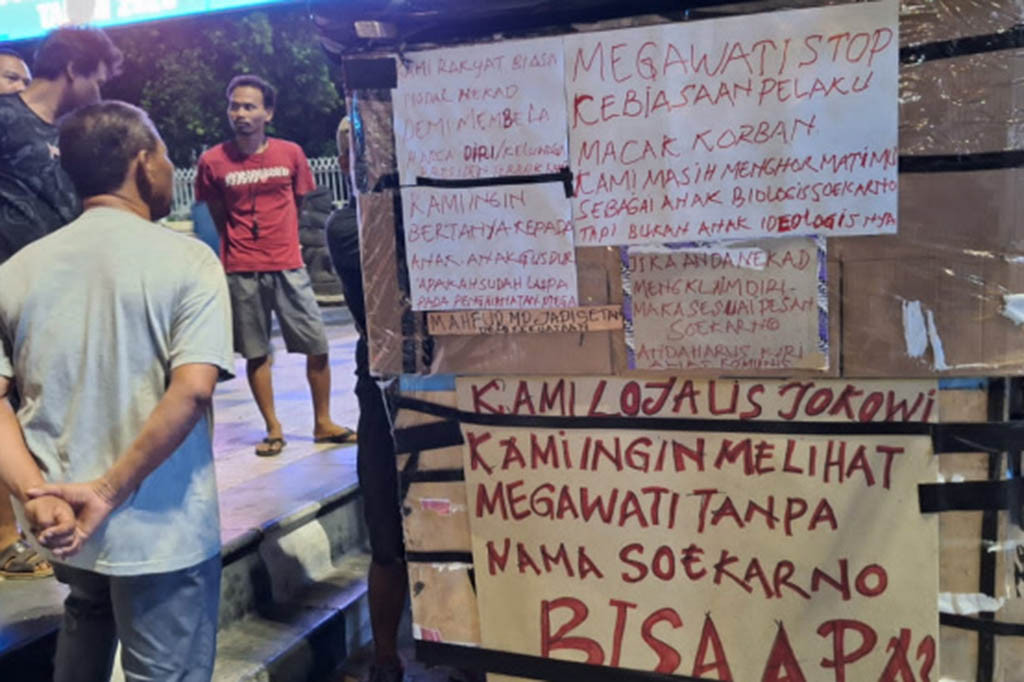 AMI RAKYAT BIASA
MODAL NEKAD
DEMI MEMBELA
HARGA DIRI/KELUARGA
KAMI INGIN
BERTANYA KEPADA
ANAK. ANAK GUSDUR
APAKAH SUDAH LUPA
PADA PENGKHIANATAN MEGA
MAHFUD MD. JADI SETAN
MEGAWATI STOP
KEBIASAAN PELAKU
MACAK KORBAN
KAMI MASIH MENGHORMATIMU
SEBAGAI ANAK BIOLOGIS SOEKARNO
TAPI BUKAN ANAK IDEOLOGISNYA
JIKA ANDA NEKAD
MENGKLAIM DIRI-
MAKA SESUAI PESAN
SOEKARNO
ANDA HARUS KIRI
KAMI LOJALIS JOKOWI
KAMI INGIN MELIHAT
MEGAWATI TANPA
NAMA SOEKARNO
BISA APA?